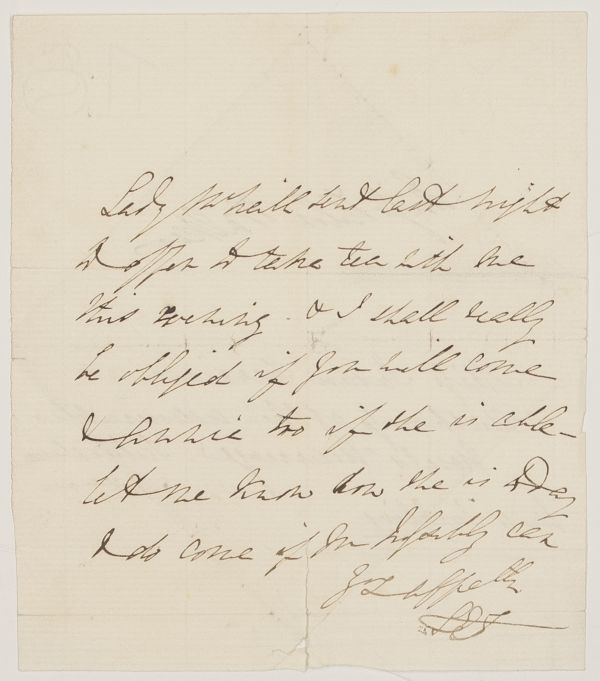 Lady McNeill sent last night
to offer to take tea with me
this evening. & I shall really
be obliged if you will come
& Annie too if she is able -
let me know how she is today
& do come if you possibly can
Yrs affectly